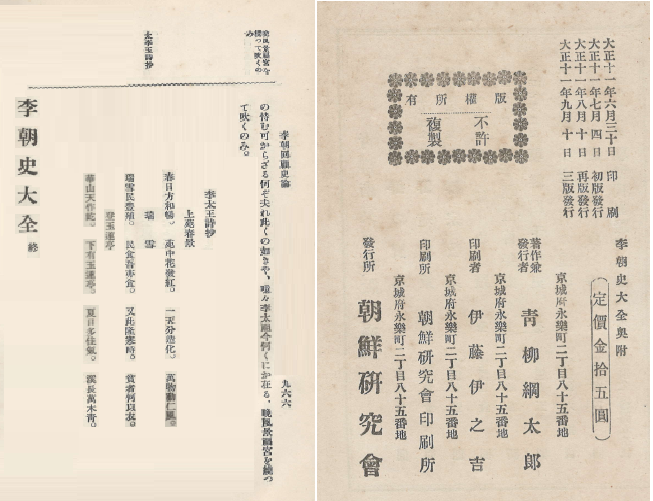 暁風景福宮を
繞つて吹くの
み
太李王詩抄
李朝回顧史論
九六六
の惜む可からざる何ぞ夫れ此くの如きや、噫々李太祖今何くにか在る、暁風景福宮を繞つ
て吹くのみ。
李太王詩抄
上苑春景
春日方和暢。苑中花發紅。造化。萬物動仁風。
瑞雪
瑞雪民豊。民食吾亦食。又此隆寒時。貧者何
登玉蓮亭
華山天作。下有玉蓮亭。夏日多佳氣。溪長萬木靑。
李朝史大全 終
大正十一年六月三十日 印刷
大正十一年七月四日 初版發行
大正十一年八月十日 再版發行
大正十一年九月十日 三版發行
版權所有
不許
複製
李朝史大全奧附
定價金拾五圓
京城府永樂町二丁目八十五番地
著作兼
發行者 靑柳綱太郎
京城府永樂町二丁目八十五番地
印刷者 伊藤伊之吉
京城府永樂町二丁目八十五番地
印刷所 朝鮮硏究會印刷所
京城府永樂町二丁目八十五番地
發行所 朝鮮硏究會